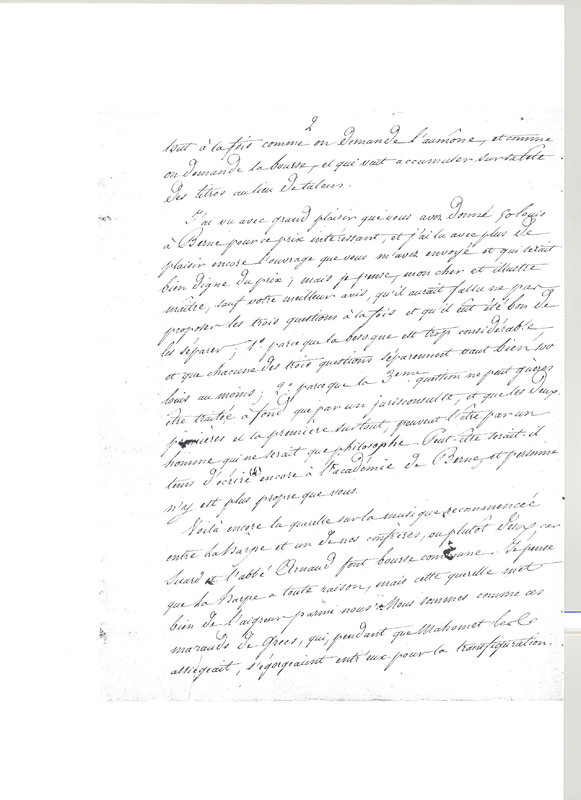 2
tout à la fois comme on demande l'aumône, et comme
on demande la bourse, et qui veut accumuler sur sa tête
des titres au lieu de talens.
J'ai vu avec grand plaisir que vous avez donné 50 louis
à Berne pour ce prix intéressant, et j'ai lu avec plus de
plaisir encore l'ouvrage que vous m'avez envoyé et qui serait
bien digne du prix; mais je pense, mon cher et illustre
maître, sauf votre meilleur avis, qu'il aurait fallu ne pas
proposer les trois questions à la fois et qu'il eut été bon de
les séparer; 1° parce que la besogne est trop considérable
et que chacune des trois questions séparement vaut bien 100
louis au moins; 2° parce que la 3eme question ne peut guères
être traitée à fond que par un jurisconsulte, et que les deux
premières et la première surtout, peuvent l'être par un
homme qui ne serait que philosophe. Peut-être serait-il
tems d'écrire encore à l'académie de Berne, et personne
n'y est plus propre que vous.
Voilà encore la querelle sur la musique recommencée
entre La harpe et un de nos confrères, ou plutôt deux, car
Suard et l'abbé Arnaud font bourse commune. Je pense
que La harpe a toute raison, mais cette querelle met
bien de l'aigreur parmi nous. Nous sommes comme ces
marauds de Grecs, qui, pendant que Mahomet les
assiégeait, s'égorgeaient entr'eux pour la transfiguration.